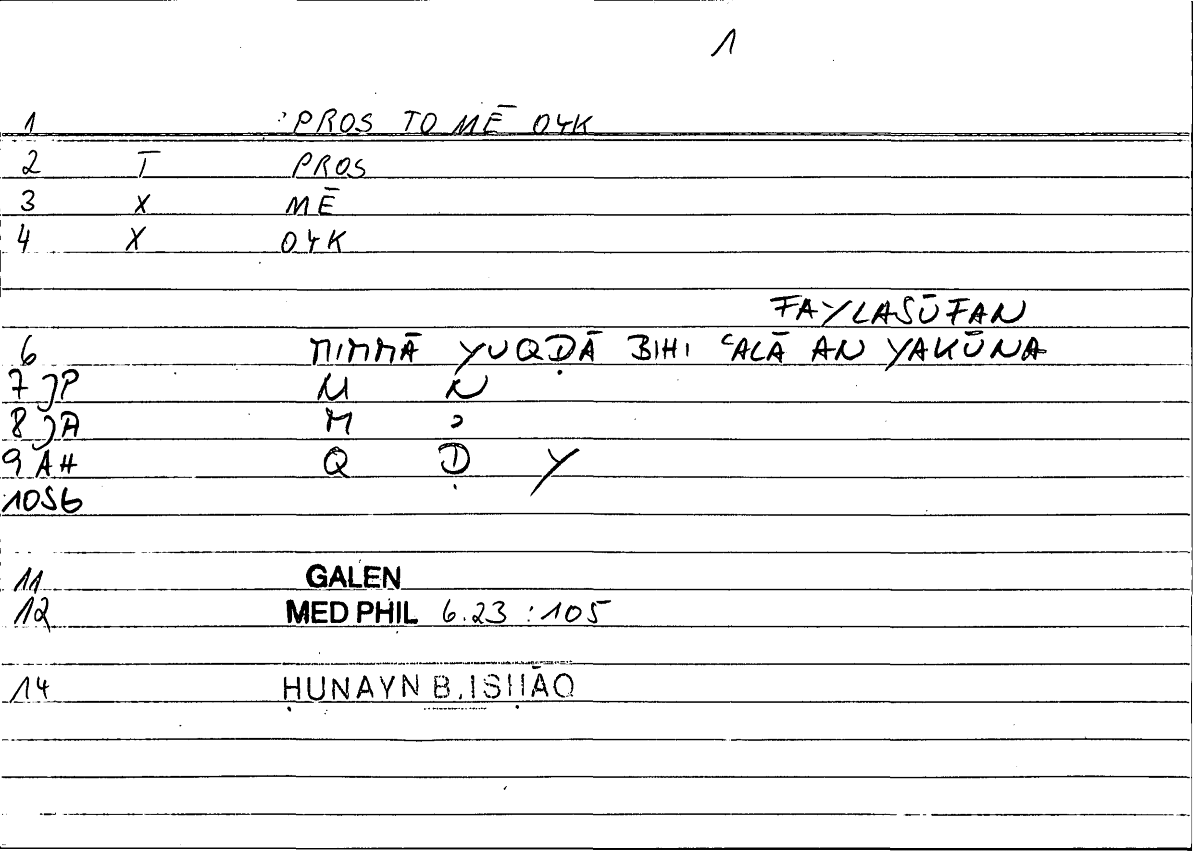 1
1 PROS TO MĒ OYK
2 T PROS
3 X MĒ
4 X OYK
FAYLASŪFAN
6 MIMMĀ YUQḌĀ BIHI ʿALĀ AN YAKŪNA
7 JP M N
8 JA M ʾ
9 AH Q Ḍ Y
10 SB
11 GALEN
12 MED PHIL 6.23 :105
14 ḤUNAYN B. ISḤĀQ